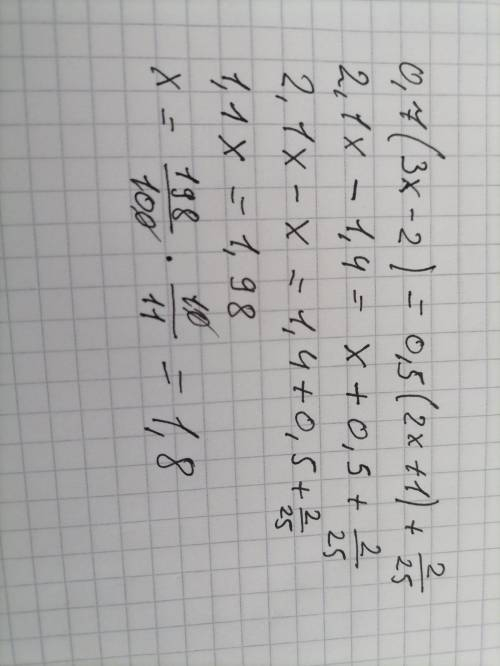 0,7(3x-2)=0,5(2x+1)+2/25
2,1x-1,4=x+0,5+2/25
2,1x-x=1,4+0,5+2/25
1,1x=1,98
x=198/100·10/11=1,8